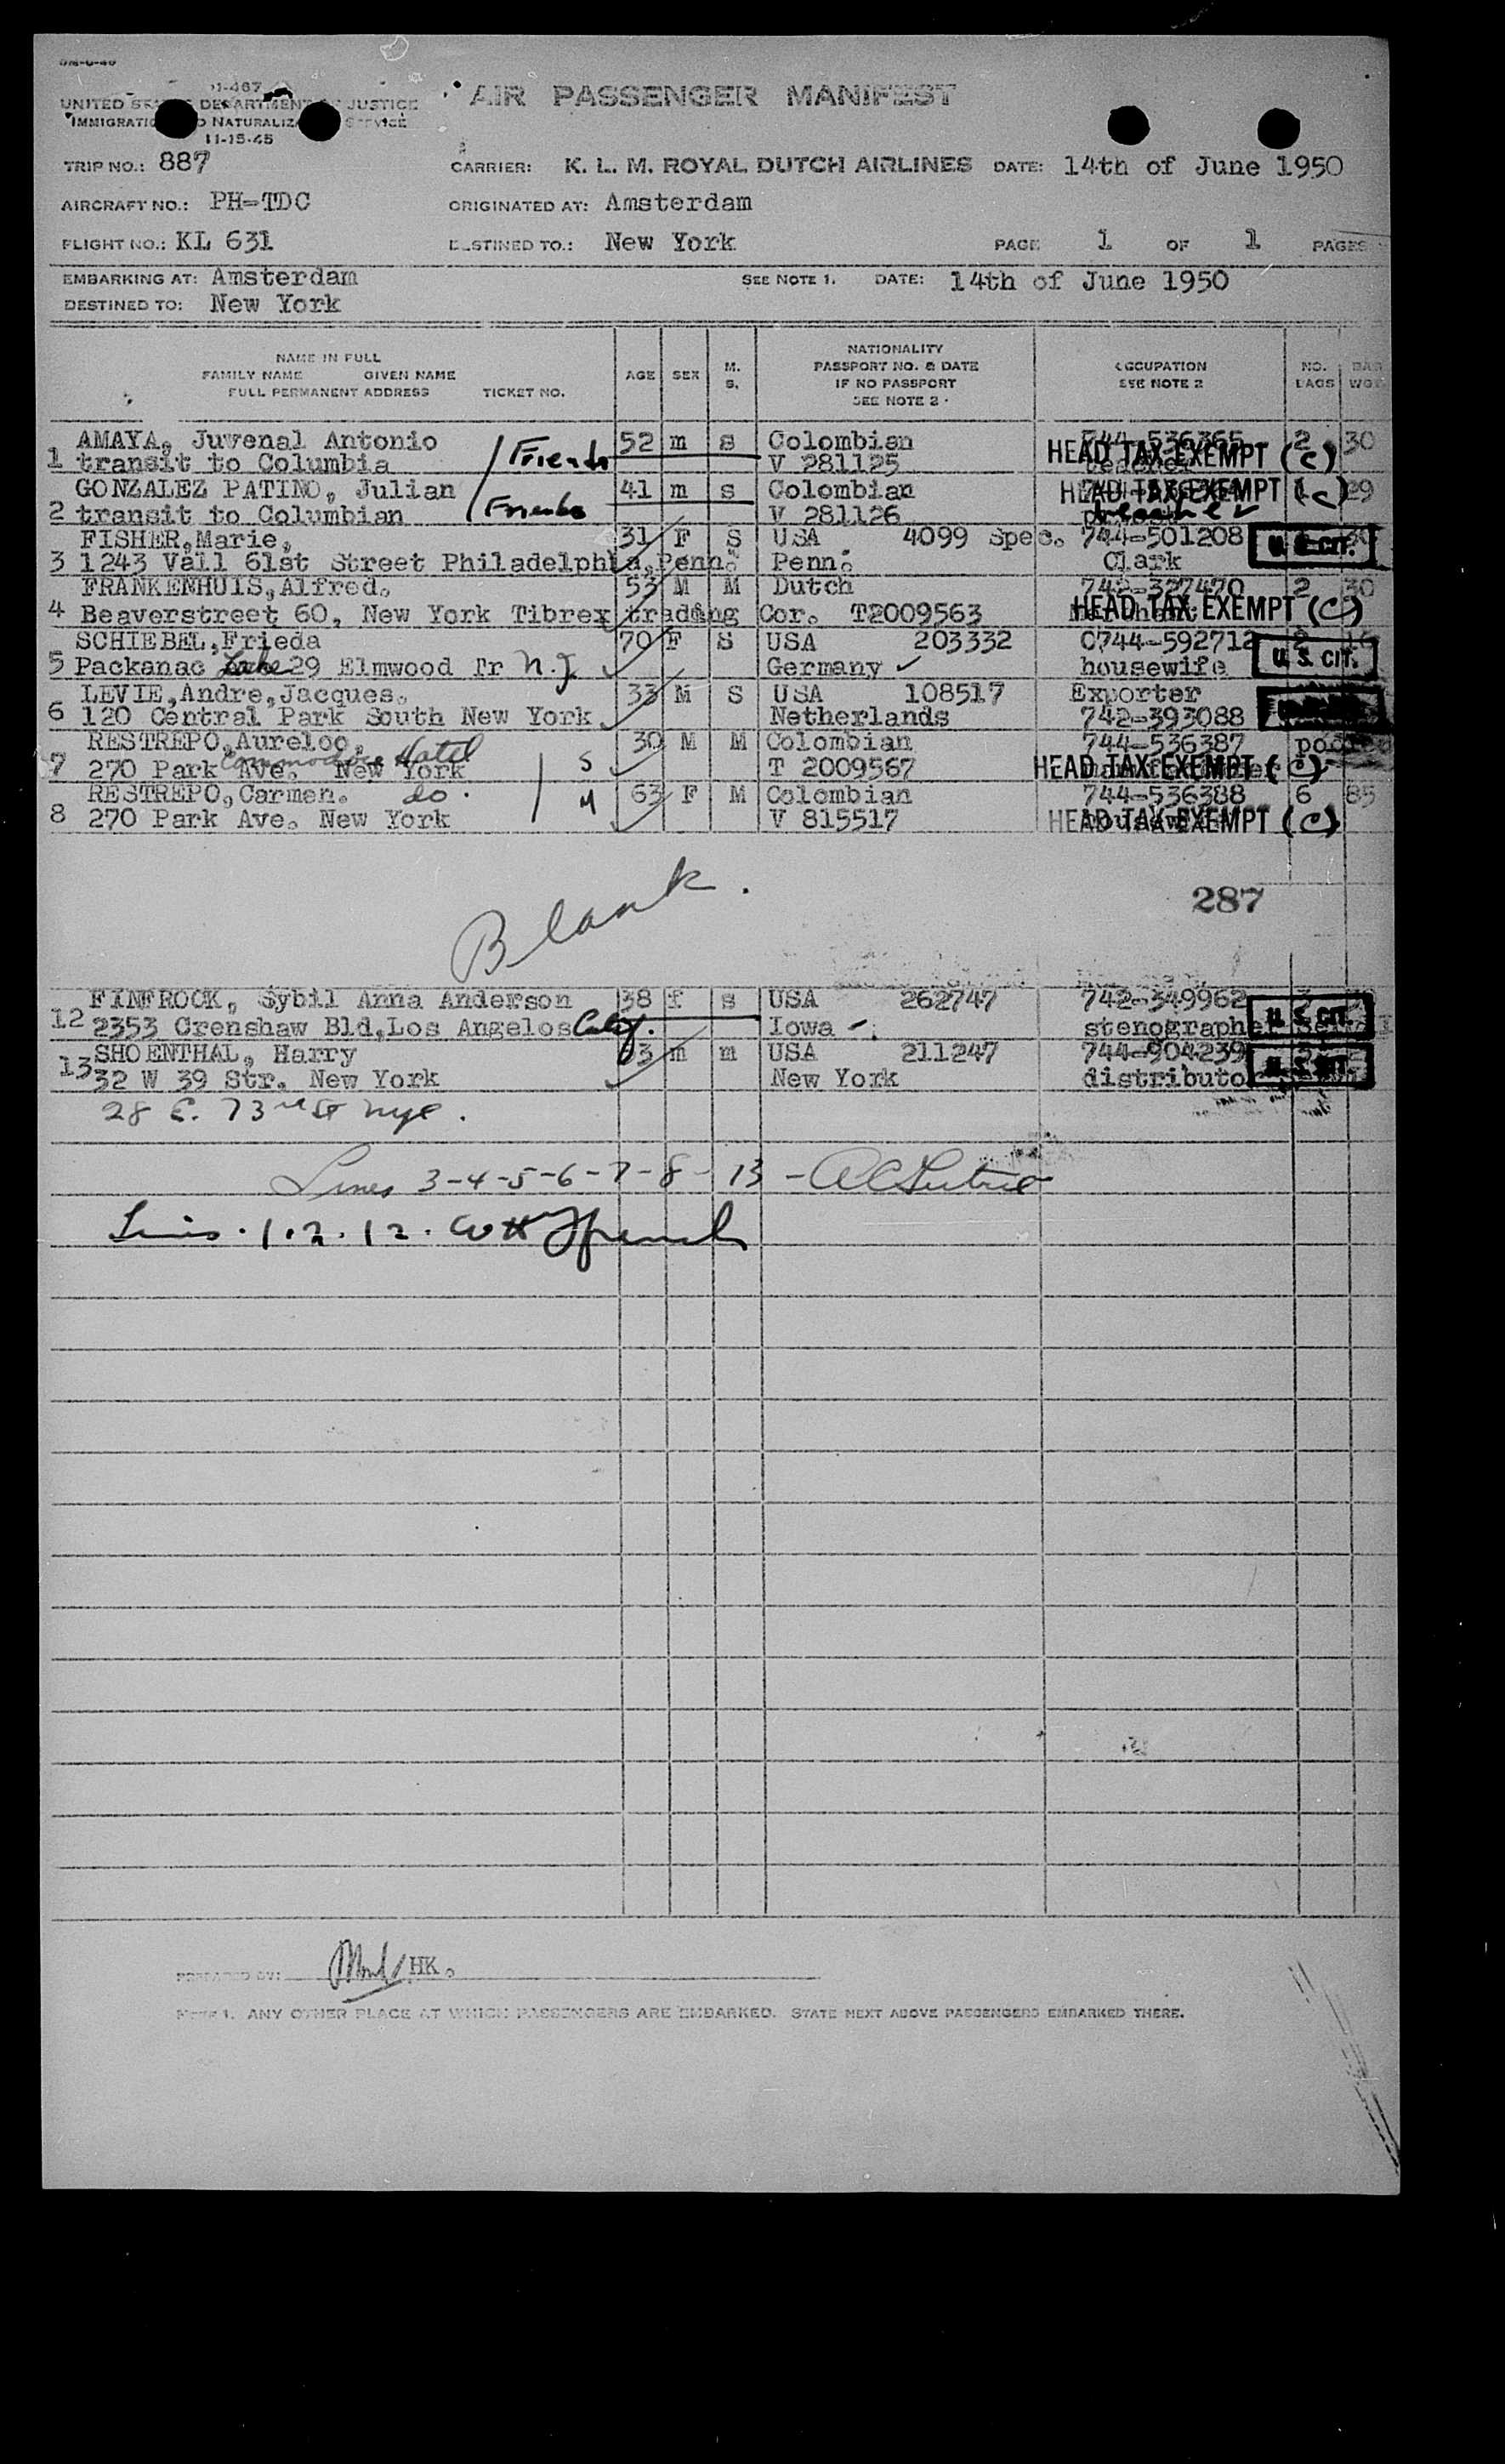 UNITED STATES DEPARTMENT OF JUSTICE
IMMIGRATION AND NATURALIZATION SERVICE
11-15-45
AIR PASSENGER MANIFEST
TRIP NO.: 887 CARRIER: K. L. M. ROYAL DUTCH AIRLINES DATE: 14th of June 1950
AIRCRAFT NO.: PH-TDC ORIGINATED AT: Amsterdam
FLIGHT NO.: KL 631 DESTINED TO.: New York PAGE 1 OF 1 PAGES
EMBARKING AT: Amsterdam SEE NOTE 1. DATE: 14th of June 1950
DESTINED TO: New York
NAME IN FULL
FAMILY NAME GIVEN NAME
FULL PERMANENT ADDRESS TICKET NO.
AGE SEX M. S.
NATIONALITY
PASSPORT NO. & DATE
IF NO PASSPORT
SEE NOTE 2
OCCUPATION
SEE NOTE 2
NO. BAGS
BAG WGT
AMAYA, Juvenal Antonio / Friends 52 m s Colombian 744-536365 2 30
1 transit to Columbia V 281125 HEAD TAX EXEMPT (C)
GONZALEZ PATINO, Julian / Friends 41 m s Colombian HEAD TAX EXEMPT (C) 1 29
2 transit to Columbian V 281126 teacher
FISHER,Marie, 31 F S USA 4099 Spec. 744-501208 U. S. CIT. 30
3 1243 Vall 61st Street Philadelphia,Penn. Penn. Clark
FRANKENHUIS,Alfred. 53 M M Dutch 742-327470 2 30
4 Beaverstreet 60, New York Tibrex trading Cor. T2009563 HEAD TAX EXEMPT (C)
SCHIEBEL,Frieda 70 F S USA 203332 0744-592712 2 16
5 Packanac Lake 29 Elmwood Tr N.J. Germany ✓ housewife U. S. CIT.
LEVIE,Andre,Jacques. 33 M S USA 108517 Exporter
6 120 Central Park South New York Netherlands 742-393088
RESTREPO,Aureloo, Commodore Hotel 30 M M Colombian 744-536387 pooled
7 270 Park Ave. New York S T 2009567 HEAD TAX EXEMPT (C)
RESTREPO,Carmen. do. 63 F M Colombian 744-536388 6 85
8 270 Park Ave. New York M V 815517 HEAD TAX EXEMPT (C)
Blank.
287
FINFROCK, Sybil Anna Anderson 38 f s USA 262747 742-349962 3
12 2353 Crenshaw Bld,Los Angelos Calif. Iowa stenographer U. S. CIT.
SHOENTHAL, Harry 63 m m USA 211247 744-904239
13 32 W 39 Str. New York New York distributor U. S. CIT.
28 E. 73rd St nyc.
Lines 3-4-5-6-7-8-13 -
Lines . 1.2.12.
PREPARED BY: HK.
NOTE 1. ANY OTHER PLACE AT WHICH PASSENGERS ARE EMBARKED. STATE NEXT ABOVE PASSENGERS EMBARKED THERE.